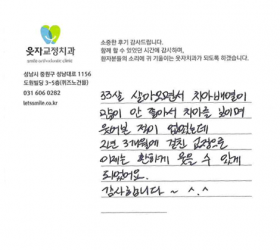 웃자교정치과
성남시 중원구 성남대로 1156
도원빌딩 3~5층(위즈노건물)
031 606 0282
letssmile.co.kr
소중한 후기 감사드립니다.
함께 할 수 있었던 시간에 감사하며,
환자분들의 소리에 귀 기울이는 웃자치과가 되도록 하겠습니다.
33살 살아오면서 치아배열이
많이 안 좋아서 치아를 보이며
웃어본 적이 없었는데
2년 3개월에 걸친 교정으로
이제는 환하게 웃을 수 있게
되었어요.
감사합니다 ~ ^.^